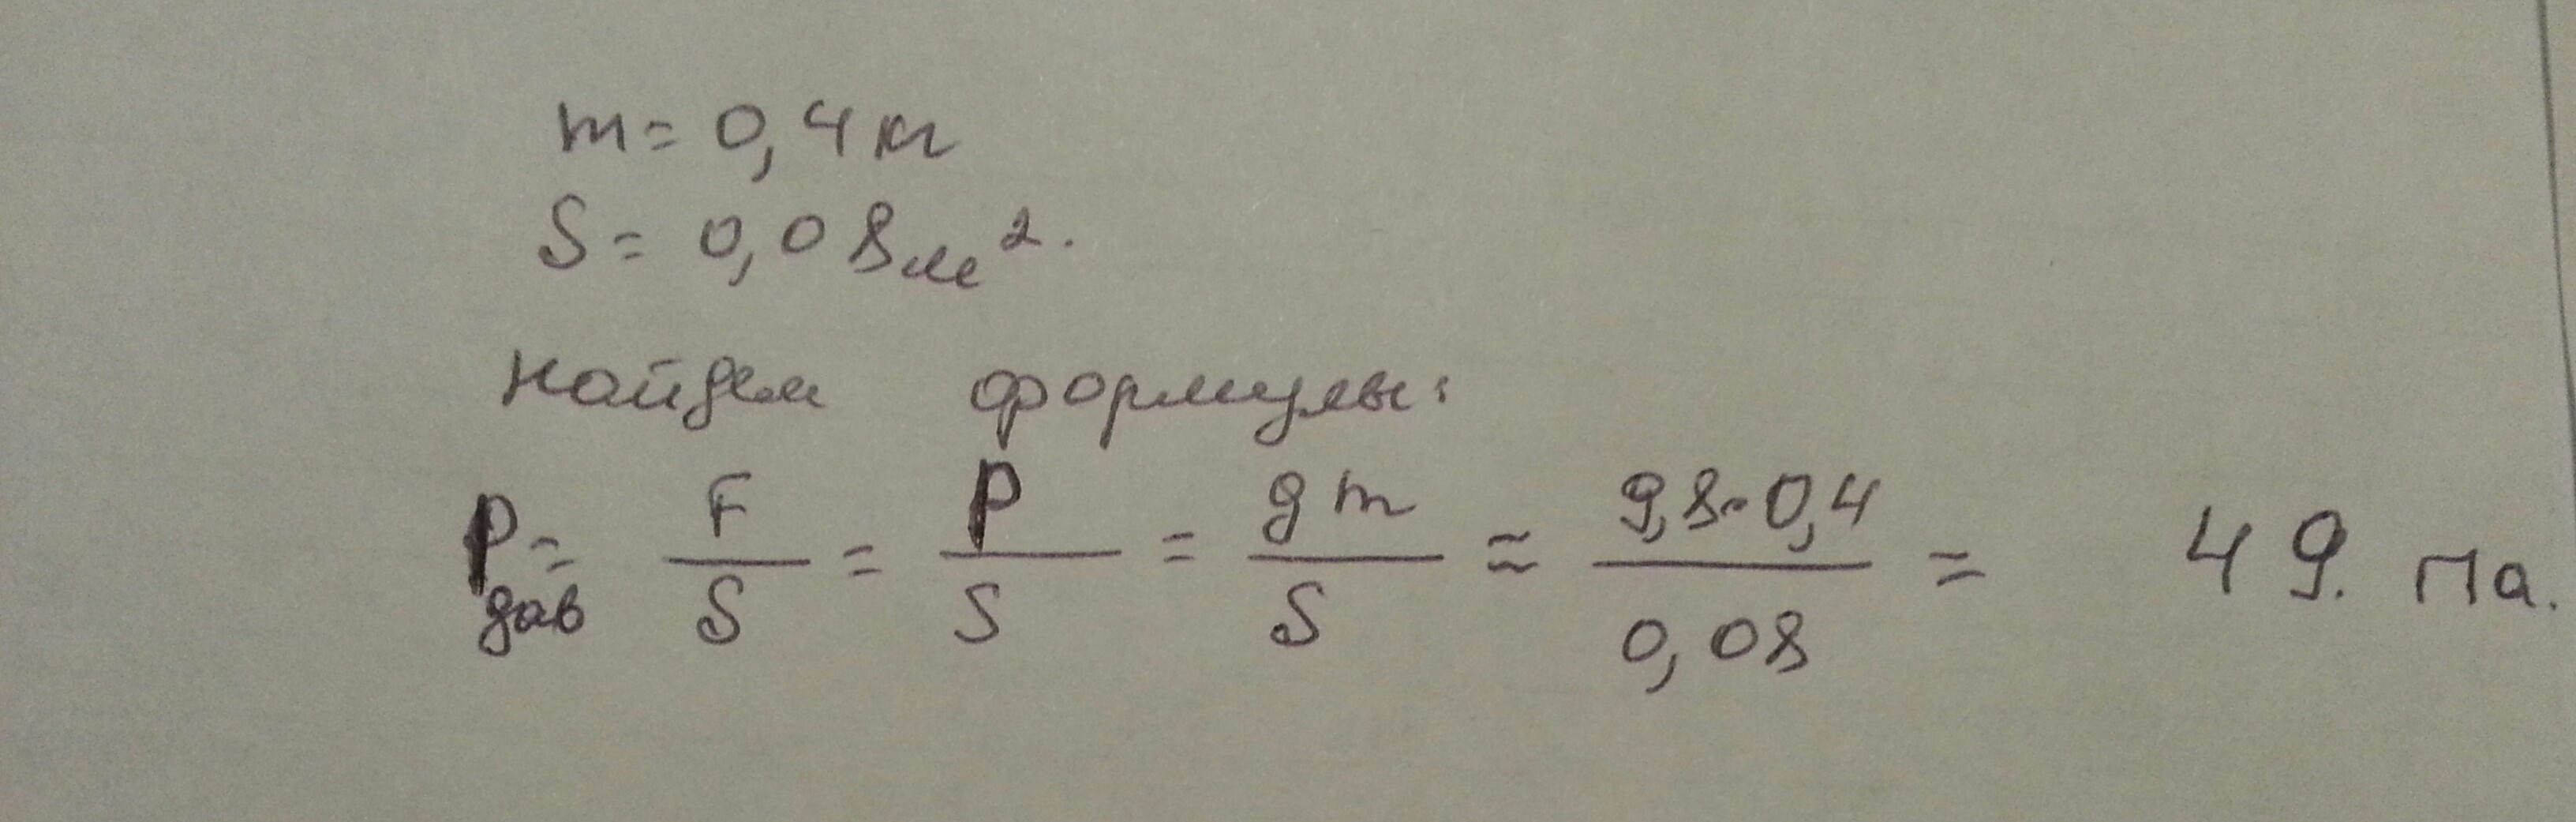 m = 0,4 кг
S = 0,08 м².
найдем формулы:
Pдав = F/S = P/S = gm/S ≈ 9,8·0,4/0,08 = 49. Па.